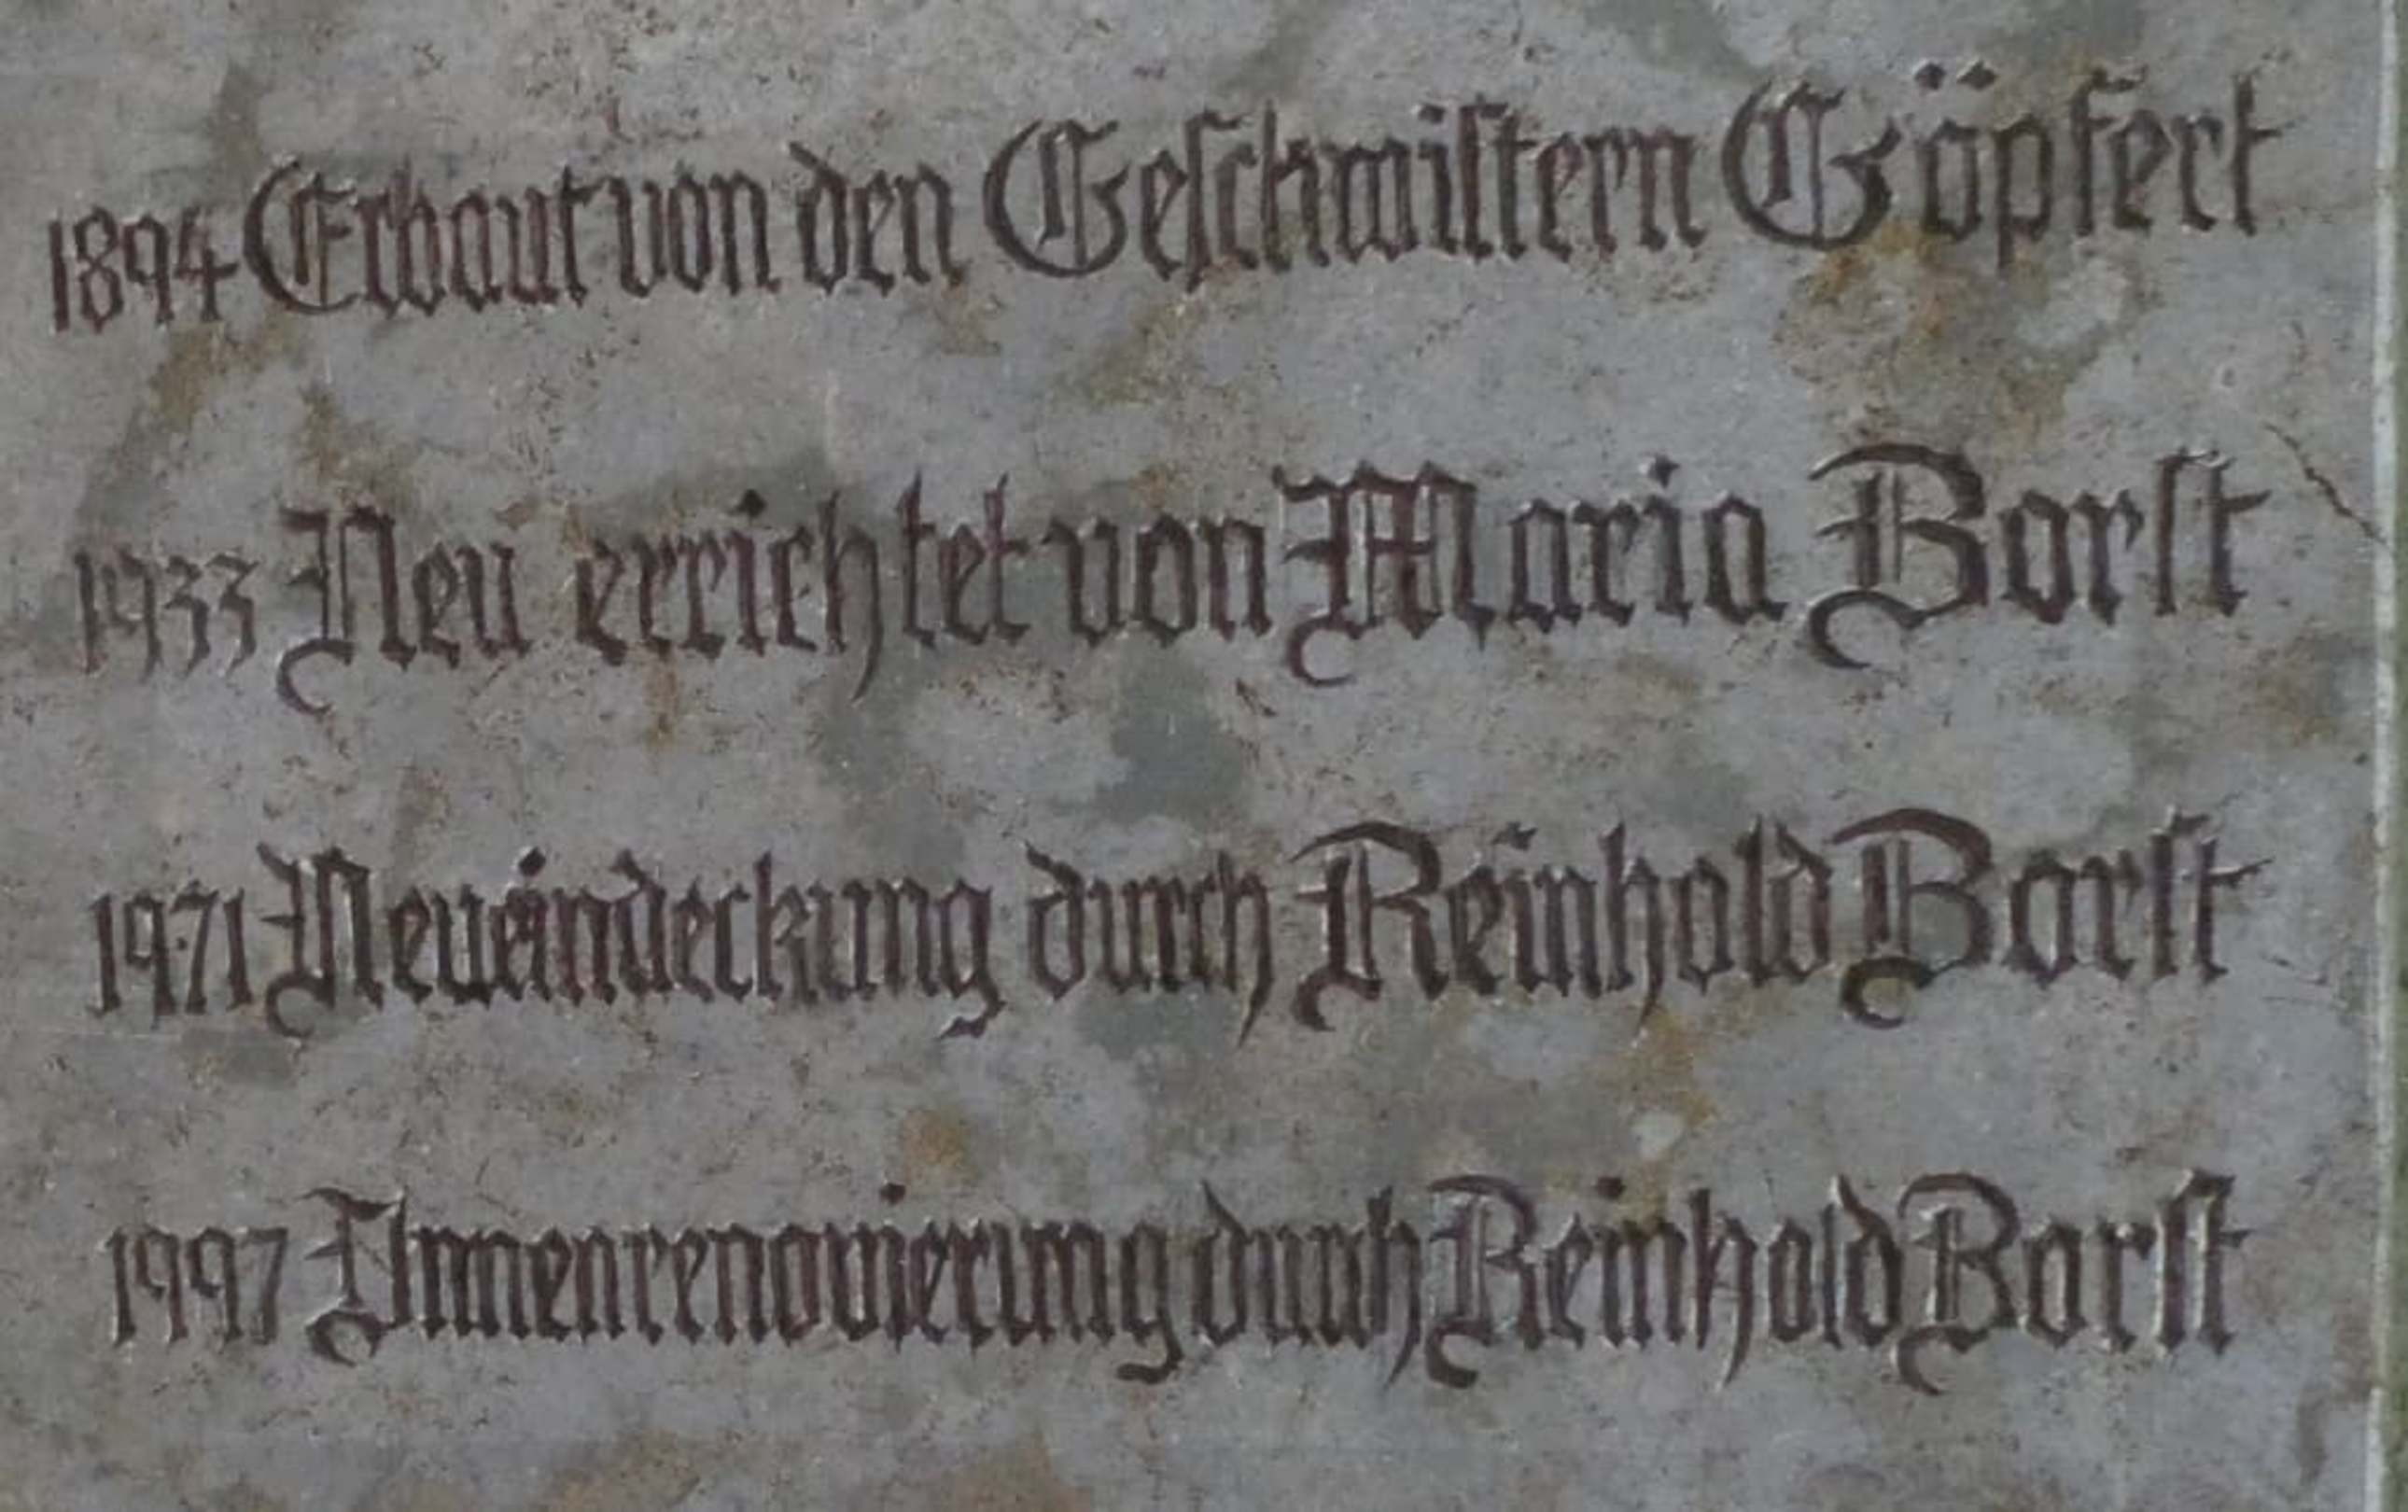 1894 Erbaut von den Geſchwiſtern Göpfert
1933 Neu errichtet von Maria Borſt
1971 Neueindeckung durch Reinhold Borſt
1997 Innenrenovierung durch Reinhold Borſt